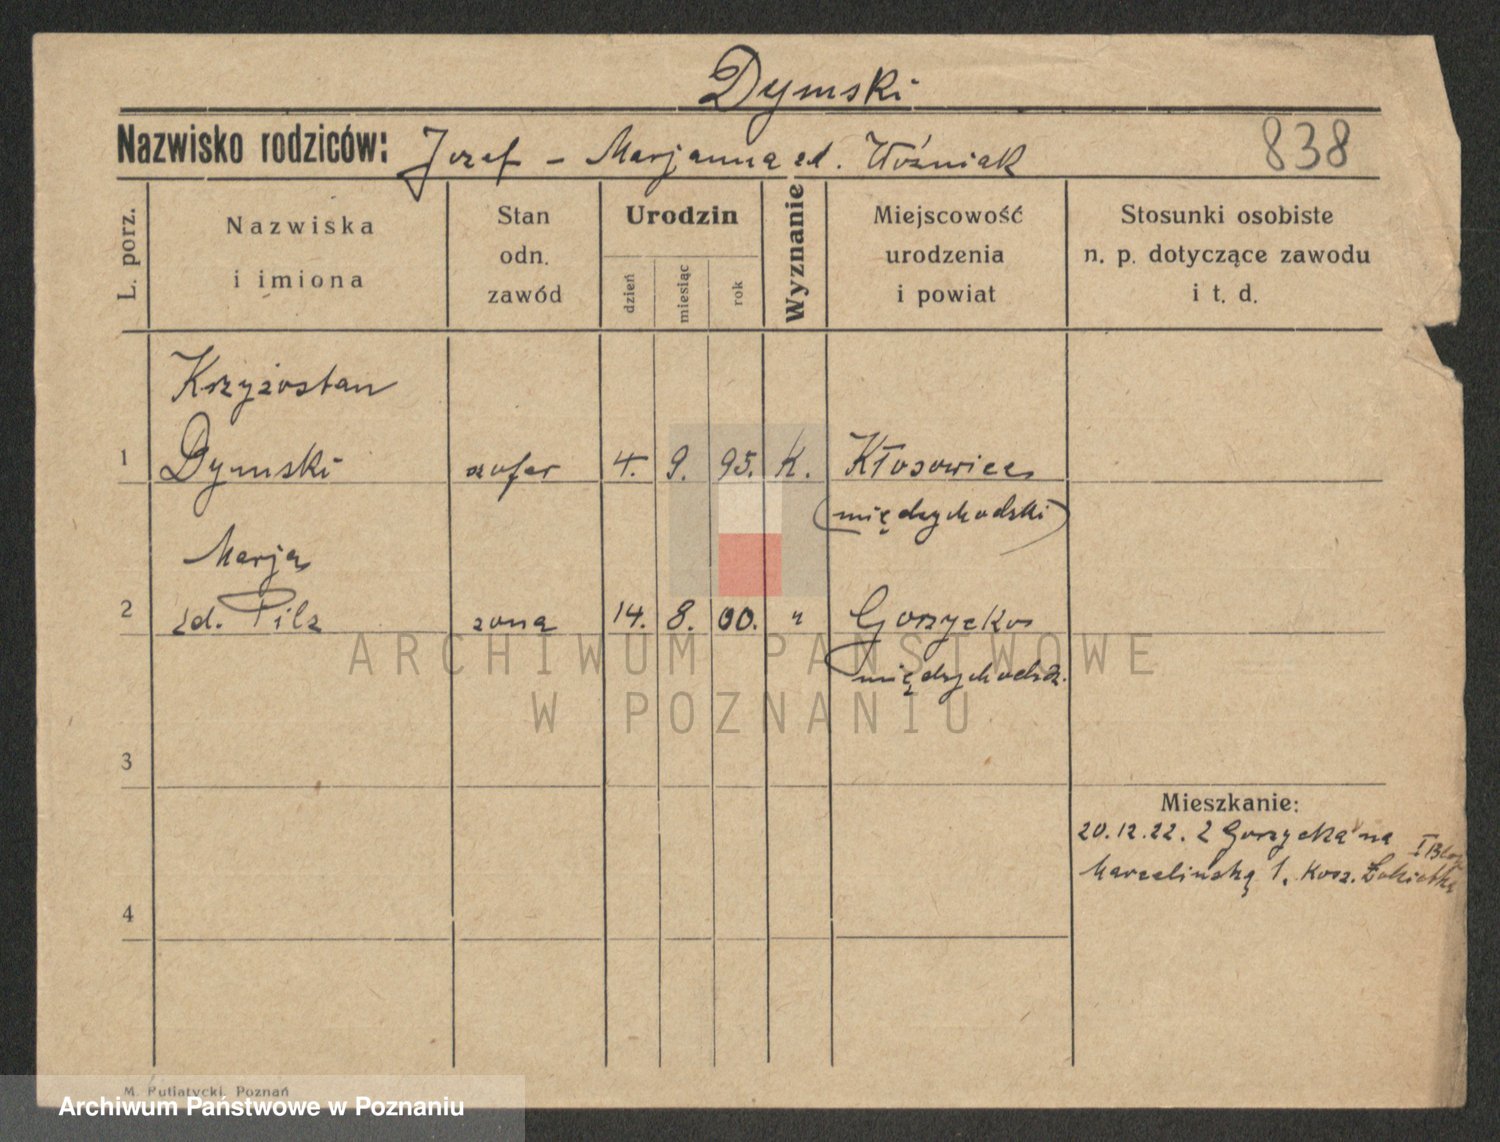 Dymski
Nazwisko rodziców: Jozef - Marjanna zd. Woźniak 838
L. porz.
Nazwiska
i imiona
Stan
odn.
zawód
Urodzin
dzień
miesiąc
rok
Wyznanie
Miejscowość
urodzenia
i powiat
Stosunki osobiste
n. p. dotyczące zawodu
i t. d.
Krzyżostan
1 Dymski szofer 4. 9. 95. K. Kłosowice
(międzychodski)
Marja
2 zd. Pilz żona 14. 8. 00. " Gorzycko
międzychodz.
3
Mieszkanie:
20.12.22. Z Gorzycka na
Marcelińską 1, Kosz. I Blok
4
M. Putiatycki, Poznań
ARCHIWUM PAŃSTWOWE
W POZNANIU
Archiwum Państwowe w Poznaniu